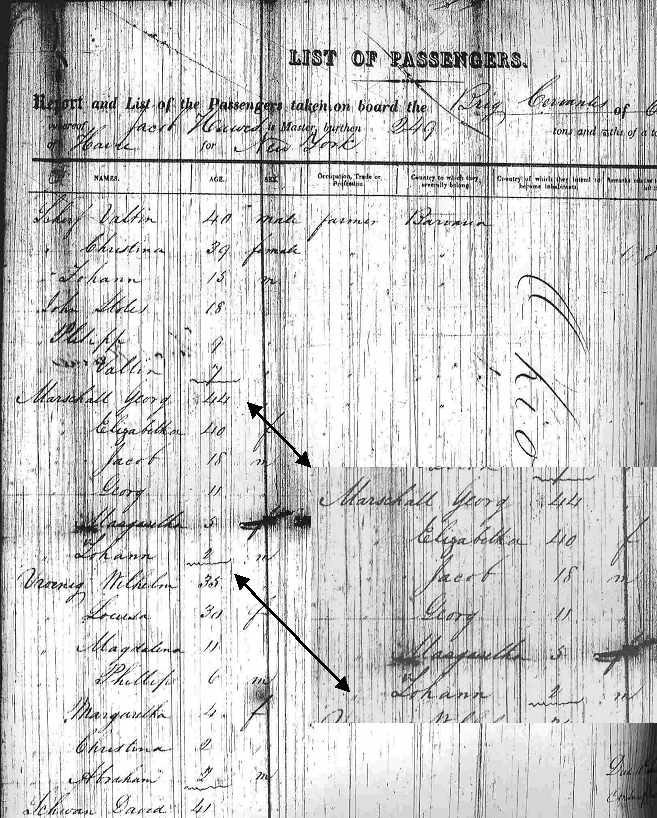 LIST OF PASSENGERS.
Report and List of the Passengers taken on board the Brig Cervantes of
whereof Jacob Hawes is Master, burthen 249 tons and
of Havre for New York
NAMES. AGE. SEX. Occupation, Trade or Profession. Country to which they severally belong. Country of which they intend to become inhabitants. Remarks relative to
Valtin 40 male farmer Bavaria
" Christina 39 female
" Johann 15 m
John 18
Philipp 9
Valtin 7
Ohio
Marschall Georg 44
Elizabetha 40 f
Jacob 18 m
Georg 11
Maagaretha 5 f
Johann 2 m
Wilhelm 35
" Louisa 30 f
" Magdalena 11
Phillip 6 m
Margaretha 4 f
Christina 2
Abraham 2 m
Schwan David 41
Marschall Georg 44
Elizabetha 40 f
Jacob 18 m
Georg 11
Maagaretha 5 f
Johann 2 m